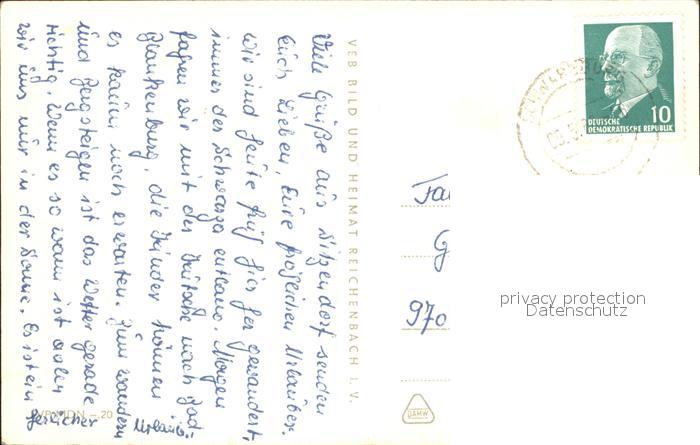 Viele Grüße aus Sitzendorf senden
Euch Lieben, Eure fröhlichen Urlauber.
Wir sind heute früh hier her gewandert,
immer der Schwarza entlang. Morgen
fahren wir mit der Kutsche nach Bad
Blankenburg, die Kinder können
es kaum noch erwarten. Zum Wandern
und Bergsteigen ist das Wetter gerade
richtig. Wenn es so warm ist aalen
wir uns nur in der Sonne. Es ist ein
herrlicher Urlaub.
VEB BILD UND HEIMAT REICHENBACH I. V.
MDN -,20
10
DEUTSCHE
DEMOKRATISCHE REPUBLIK
Fa
G
970
privacy protection
Datenschutz
DAMW